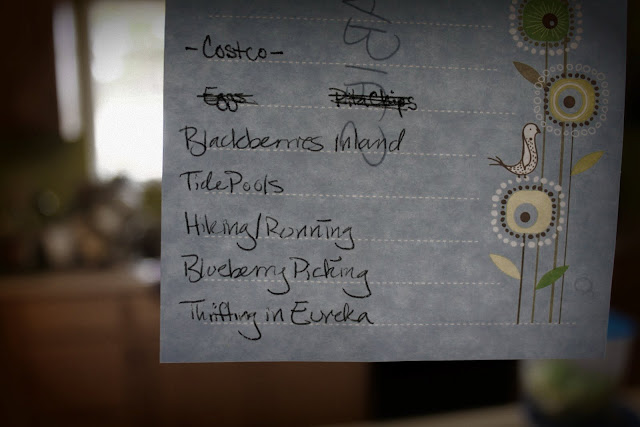 -Costco-
Eggs Pita Chips
Blackberries Inland
Tide Pools
Hiking/Running
Blueberry Picking
Thrifting in Eureka